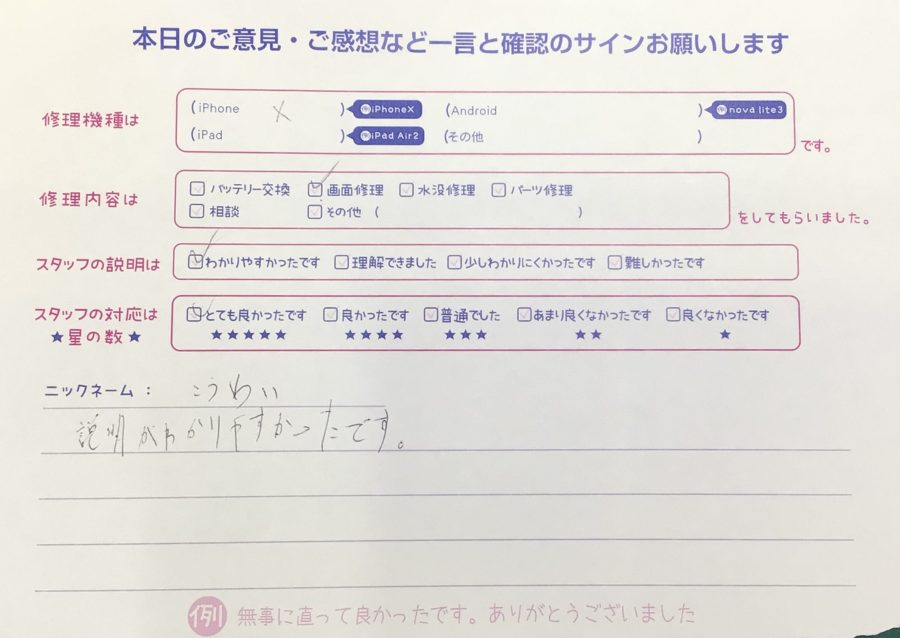 本日のご意見・ご感想など一言と確認のサインお願いします
修理機種は (iPhone X ) 例iPhoneX (Android ) 例nova lite3
(iPad ) 例iPad Air2 (その他 ) です。
修理内容は バッテリー交換 画面修理 水没修理 パーツ修理
相談 その他 ( ) をしてもらいました。
スタッフの説明は わかりやすかったです 理解できました 少しわかりにくかったです 難しかったです
スタッフの対応は とても良かったです 良かったです 普通でした あまり良くなかったです 良くなかったです
★星の数★ ★★★★★ ★★★★ ★★★ ★★ ★
ニックネーム: こうわい
説明がわかりやすかったです。
例 無事に直って良かったです。ありがとうございました